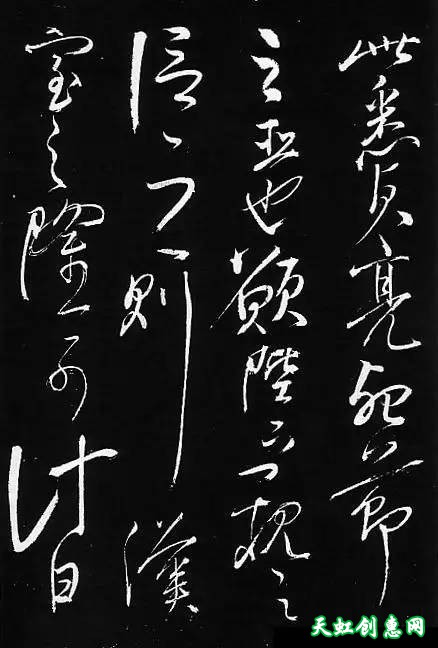 此悉貞亮死節
之臣也願陛下親之
信之則漢
室之隆可計日
天虹创惠网